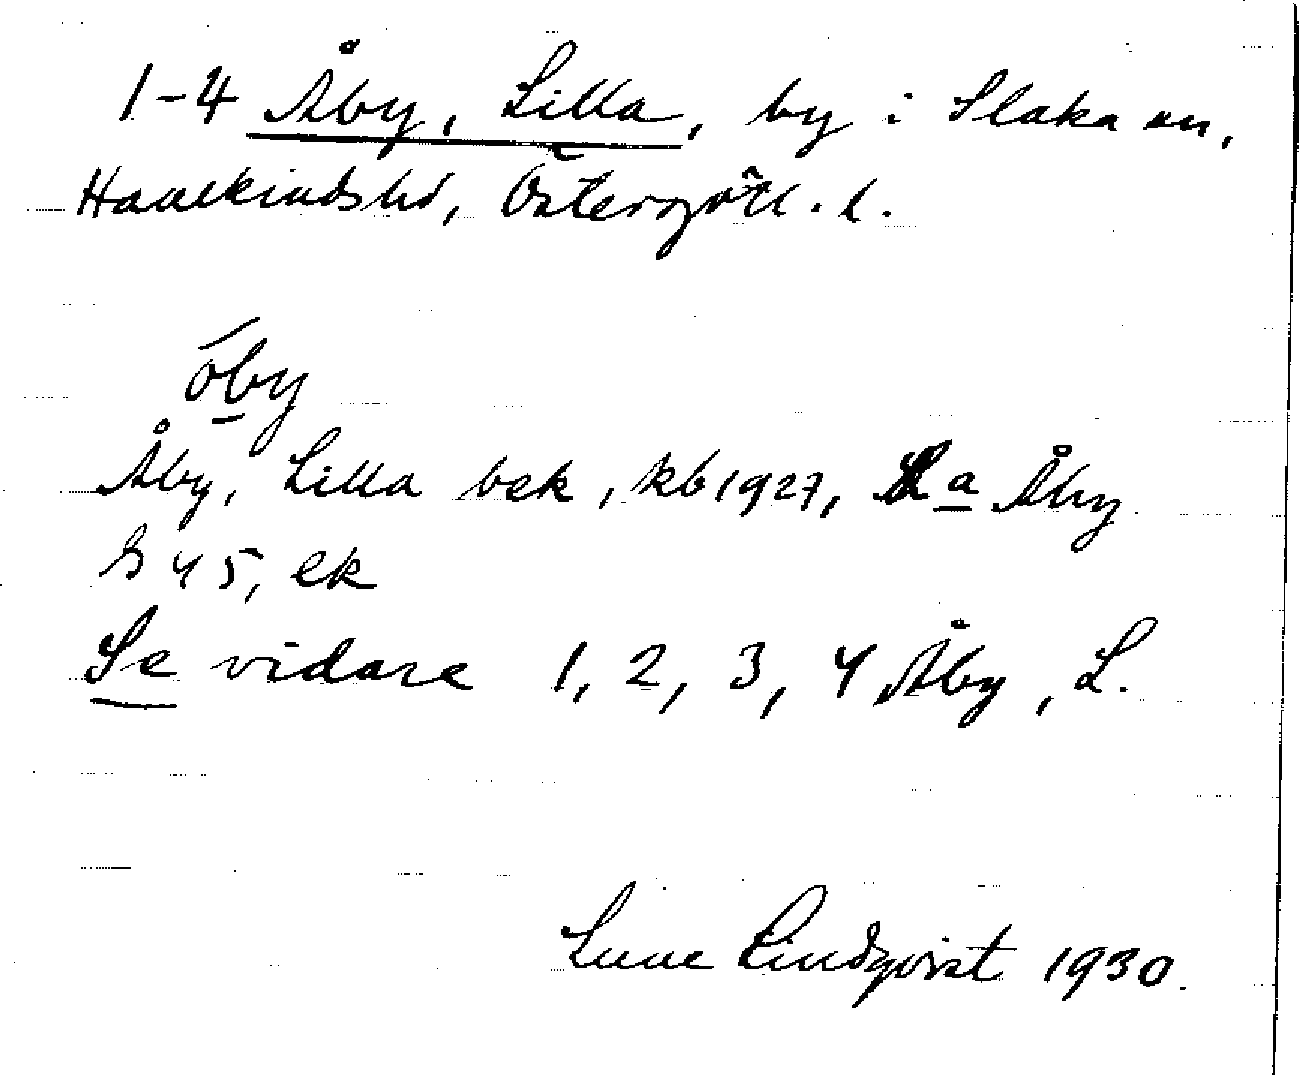 1-4 Åby, Lilla, by i Slaka sn,
Hanekinds hd, Östergötl. l.
ōby
Åby, Lilla bek, kb 1927, La Åby
S 45, ek
Se vidare 1, 2, 3, 4 Åby, L.
Sune Lindqvist 1930.